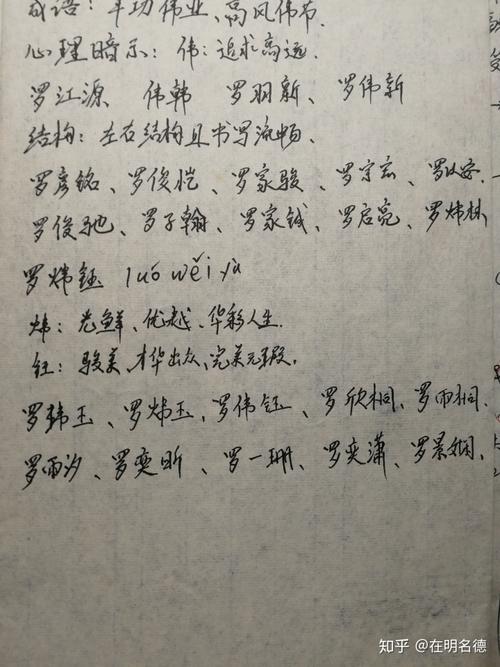 成语：丰功伟业、高风伟节.
心理暗示：伟：追求高远.
罗江源 伟韩 罗羽新、罗伟新
结构：左右结构且书写流畅.
罗彦铭、罗俊恺、罗家骏、罗宗宏、罗以安.
罗俊驰、罗子翰、罗家钺、罗启亮、罗炜林
罗炜钰 luó wěi yù
炜：光鲜、优越、华彩人生.
钰：骏美、才华出众、完美无瑕.
罗玮玉、罗炜玉、罗伟钰、罗欣桐、罗雨桐、
罗雨汐、罗奕昕、罗一珊、罗奕潇、罗景娴、
知乎 @在明名德